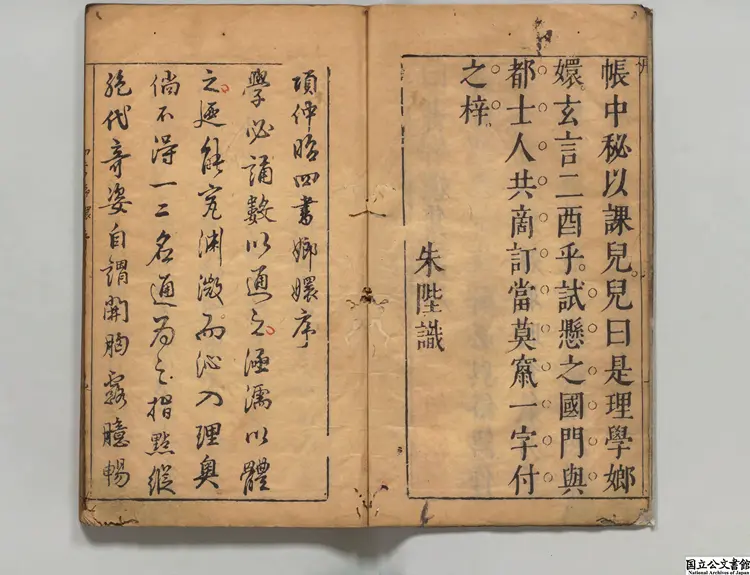 帳中秘以課兒兒曰是理學嫏
嬛玄言二酉乎試懸之國門與
都士人共商訂當莫竄一字付
之梓
朱陛識
項仲昭四書嫏嬛序
學必誦數以通之涵濡以體
之廼能究淵微而沁入理奧
倘不得一二名通為之指點縱
絕代奇姿自謂開胸露臆暢
国立公文書館
National Archives of Japan